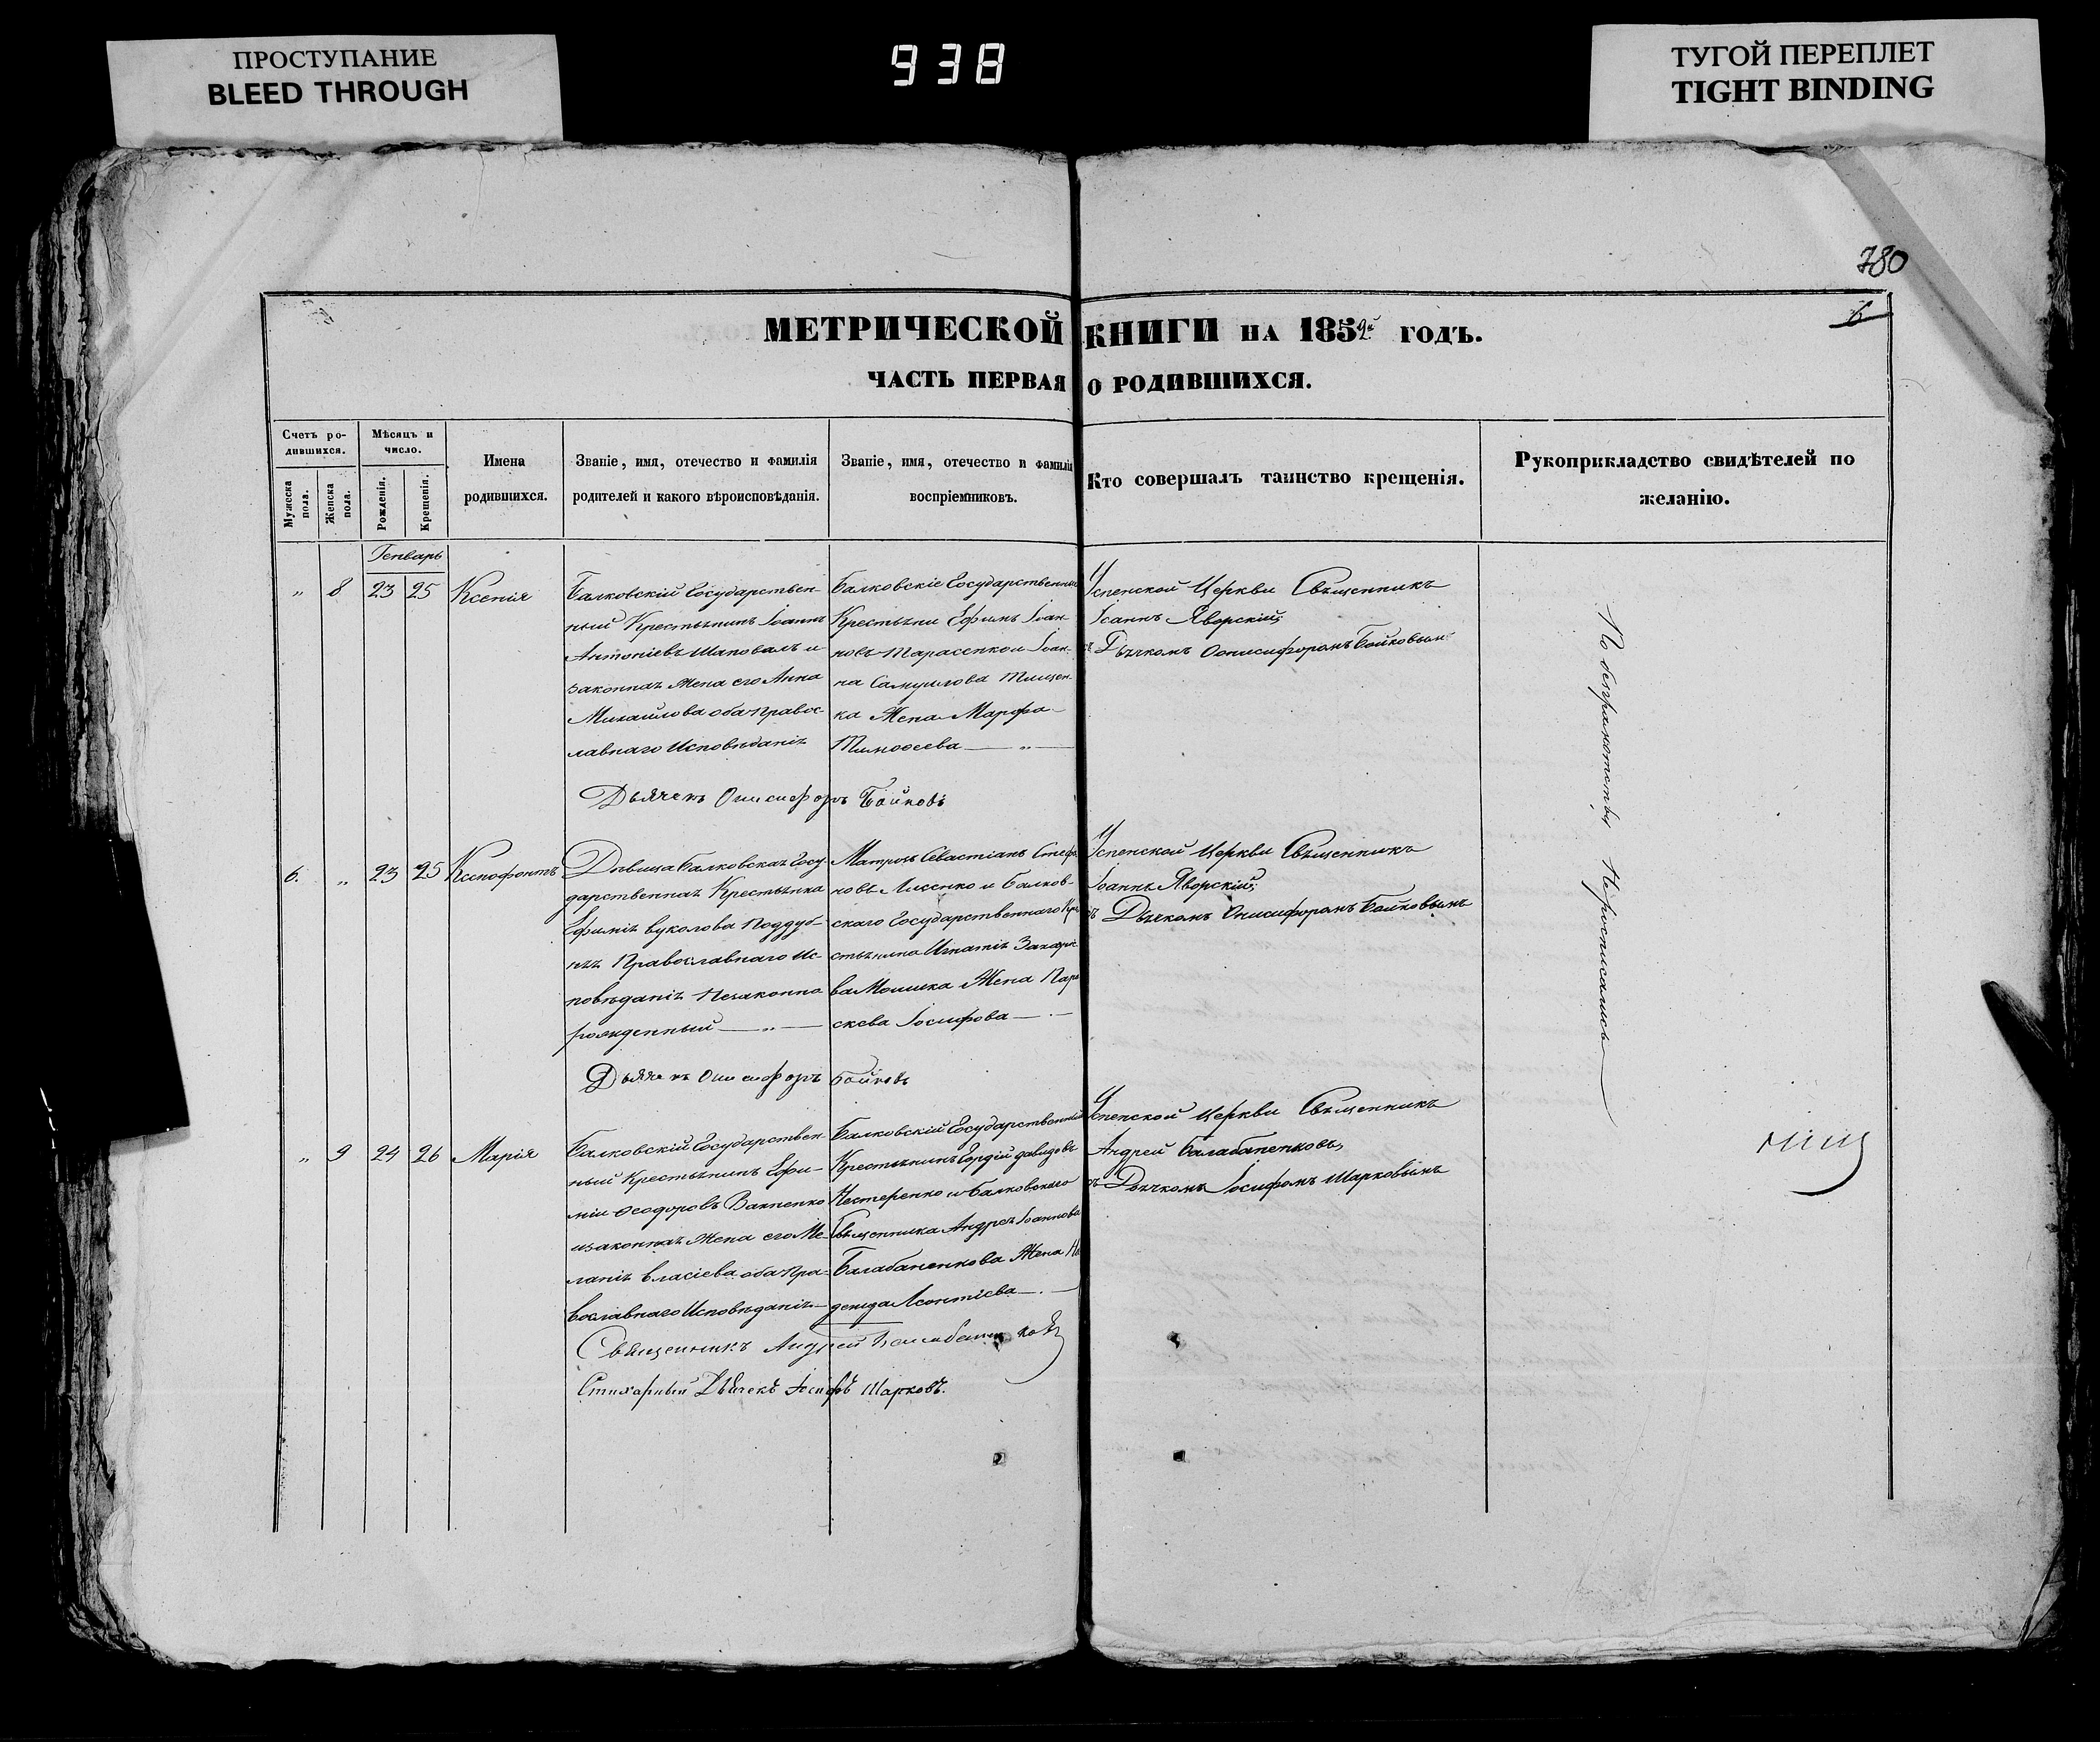 ПРОСТУПАНИЕ
BLEED THROUGH
938
ТУГОЙ ПЕРЕПЛЕТ
TIGHT BINDING
780
6
МЕТРИЧЕСКОЙ КНИГИ НА 1852й ГОДЪ.
ЧАСТЬ ПЕРВАЯ О РОДИВШИХСЯ.
Счетъ ро-
дившихся.
Мужеска
пола.
Женска
пола.
Мѣсяцъ и
число.
Рожденія.
Крещенія.
Имена
родившихся.
Званіе, имя, отечество и фамилія
родителей и какого вѣроисповѣданія.
Званіе, имя, отечество и фамилія
воспріемниковъ.
Кто совершалъ таинство крещенія.
Рукоприкладство свидѣтелей по
желанію.
Генварь
„ 8 23 25 Ксенія
Балковскій Государствен-
ный Крестьянинъ Іоаннъ
Антоніевъ Шаповалъ и
законная Жена его Анна
Михаилова оба правос-
лавнаго Исповѣданія
Балковскіе Государственные
Крестьяни Ефимъ Іоан-
новъ Тарасенко и Іоан-
на Самуилова Тищен-
ка Жена Марфа
Тимоѳеева — „ —
Успенской Церкви Священникъ
Іоаннъ Яворскій;
съ Дьячкомъ Онисифоромъ Бойковымъ
Дьячекъ Онисифоръ Бойковъ
6. „ 23 25 Ксенофонтъ
Дѣвица Балковская Госу
дарственная Крестьянка
Ефимія Вуколова Поддуб-
ная Православнаго Ис-
повѣданія Незаконно
рожденный — „ —
Матросъ Севастіанъ Стефа
новъ Лисенко и Балков-
скаго Государственнаго Кре
стьянина Игнатія Захаріе
ва Моишка Жена Пара
скева Іосифова — . —
Успенской Церкви Священникъ
Іоаннъ Яворскій;
съ Дьячкомъ Онисифоромъ Бойковымъ
Дьячекъ Онисифоръ Бойковъ
„ 9 24 26 Марія
Балковскій Государствен-
ный Крестьянинъ Ефи-
мій Ѳеодоровъ Вакпенко
и законная Жена его Ме-
ланія Власіева оба Пра-
вославнаго Исповѣданія —
Балковскій Государственный
Крестьянинъ Гордій Давидовъ
Нестеренко и Балковскаго
Священника Андрея Іоаннова
Балабаненкова Жена На
дежда Леонтіева — . —
Успенской Церкви Священникъ
Андрей Балабаненковъ,
съ Дьячкомъ Іосифомъ Марковымъ
Священникъ Андрей Балабаненковъ
Стихарный Дьячекъ Іосифъ Марковъ.
По безграмотству Неросписались